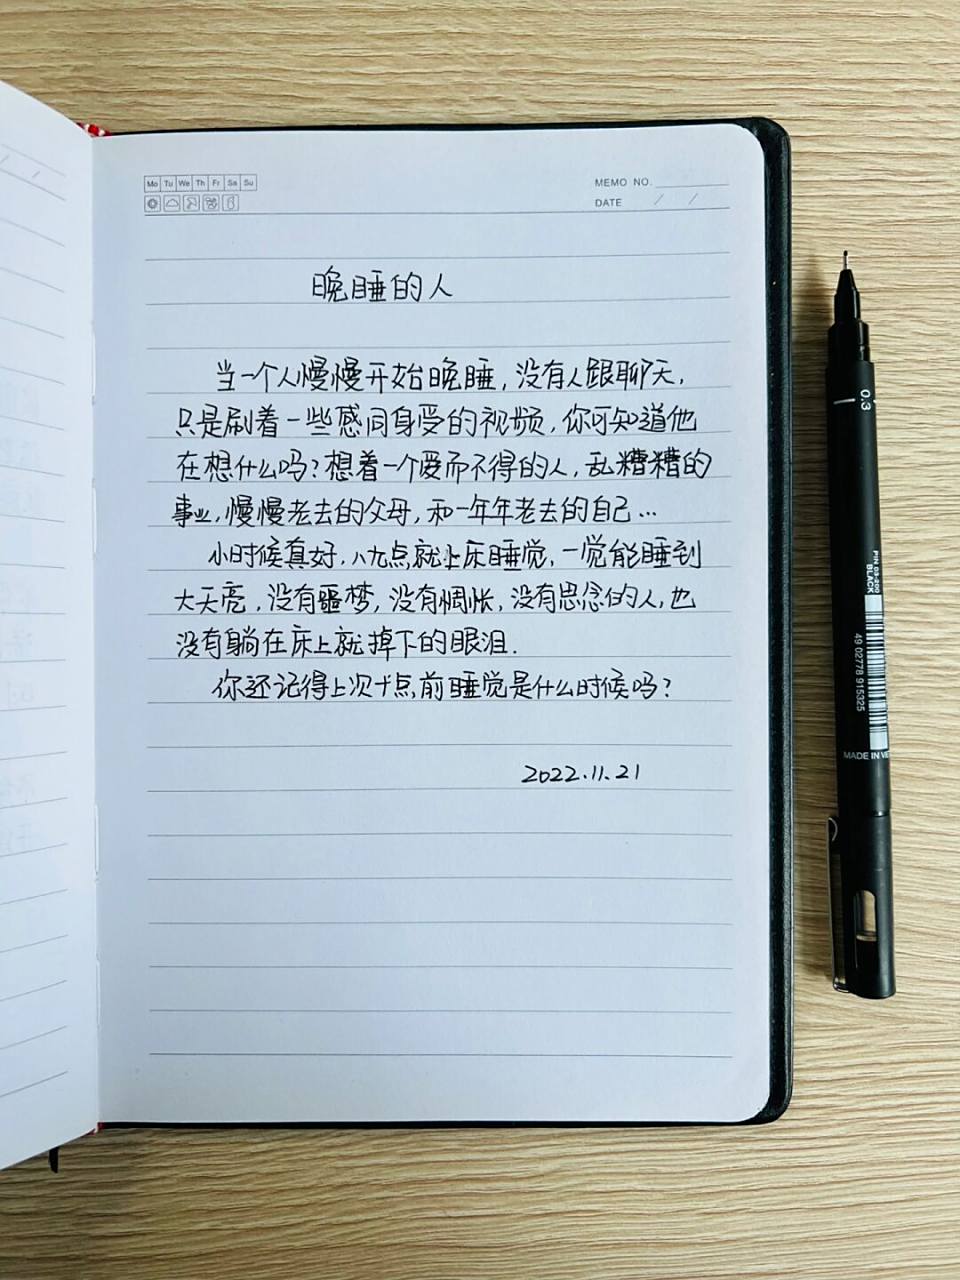 Mo Tu We Th Fr Sa Su
MEMO NO.
DATE / /
晚睡的人
当一个人慢慢开始晚睡,没有人跟聊天,
只是刷着一些感同身受的视频,你可知道他
在想什么吗?想着一个爱而不得的人,乱糟糟的
事业,慢慢老去的父母,和一年年老去的自己…
小时候真好,八九点就上床睡觉,一觉能睡到
大天亮,没有噩梦,没有惆怅,没有思念的人,也
没有躺在床上就掉下的眼泪.
你还记得上次十点前睡觉是什么时候吗?
2022.11.21
0.3
PIN 03-200
BLACK
49 02778 915325
MADE IN VIE